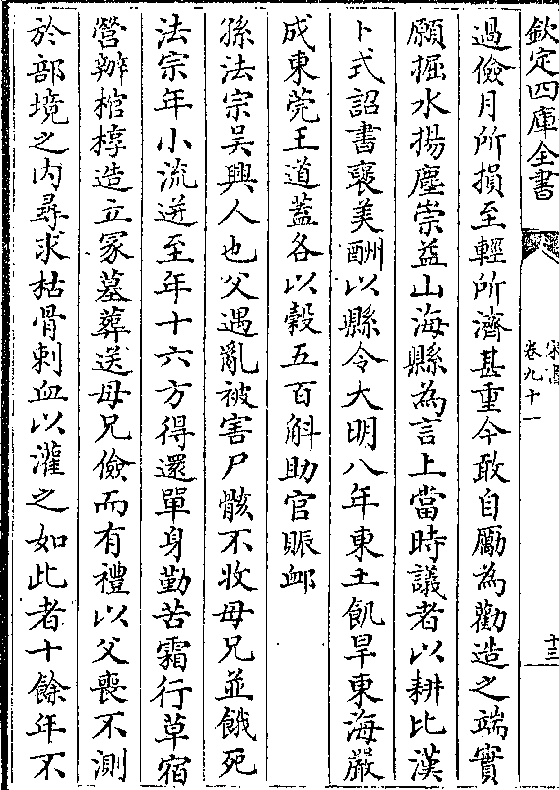 欽定四庫全書
宋書
卷九十一
十三
過儉月所損至輕所濟甚重今敢自勵為勸造之端實
願掘水揚塵崇益山海縣為言上當時議者以耕比漢
卜式詔書襃美酬以縣令大明八年東土飢旱東海嚴
成東莞王道蓋各以穀五百斛助官賑卹
孫法宗吳興人也父遇亂被害尸骸不收母兄並餓死
法宗年小流迸至年十六方得還單身勤苦霜行草宿
營辦棺槨造立冢墓葬送母兄儉而有禮以父喪不測
於部境之內尋求枯骨刺血以灌之如此者十餘年不